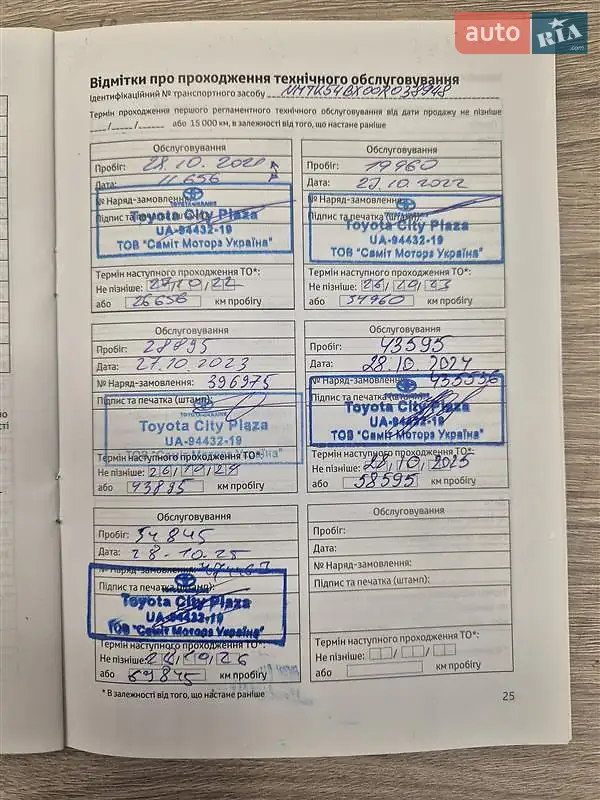 auto RIA .com
Відмітки про проходження технічного обслуговування
Ідентифікаційний № транспортного засобу
Термін проходження першого регламентного технічного обслуговування від дати продажу не пізніше
__/__/__ або 15 000 км, в залежності від того, що настане раніше
Обслуговування
Пробіг: 28.10.2021
Дата: 11 656
№ Наряд-замовлення:
Підпис та печатка (штамп):
Toyota City Plaza
UA-94432-19
ТОВ "Саміт Моторз Україна"
Термін наступного проходження ТО*:
Не пізніше: 27/10/22
або 26656 км пробігу
Обслуговування
Пробіг: 19960
Дата: 27.10.2022
№ Наряд-замовлення:
Підпис та печатка (штамп):
Toyota City Plaza
UA-94432-19
ТОВ "Саміт Моторз Україна"
Термін наступного проходження ТО*:
Не пізніше: 26/10/23
або 34960 км пробігу
Обслуговування
Пробіг: 28895
Дата: 27.10.2023
№ Наряд-замовлення: 396975
Підпис та печатка (штамп):
Toyota City Plaza
UA-94432-19
ТОВ "Саміт Моторз Україна"
Термін наступного проходження ТО*:
Не пізніше: 26/10/24
або 43895 км пробігу
Обслуговування
Пробіг: 43595
Дата: 28.10.2024
№ Наряд-замовлення: 435556
Підпис та печатка (штамп):
Toyota City Plaza
UA-94432-19
ТОВ "Саміт Моторз Україна"
Термін наступного проходження ТО*:
Не пізніше: 28/10/2025
або 58595 км пробігу
Обслуговування
Пробіг: 54845
Дата: 28.10.25
№ Наряд-замовлення:
Підпис та печатка (штамп):
Toyota City Plaza
UA-94432-19
ТОВ "Саміт Моторз Україна"
Термін наступного проходження ТО*:
Не пізніше: 28/10/26
або 69845 км пробігу
Обслуговування
Пробіг:
Дата:
№ Наряд-замовлення:
Підпис та печатка (штамп):
Термін наступного проходження ТО*:
Не пізніше: / /
або км пробігу
* В залежності від того, що настане раніше
25